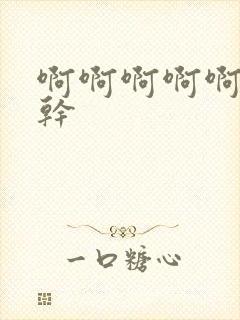 啊啊啊啊啊
幹
一口糖心